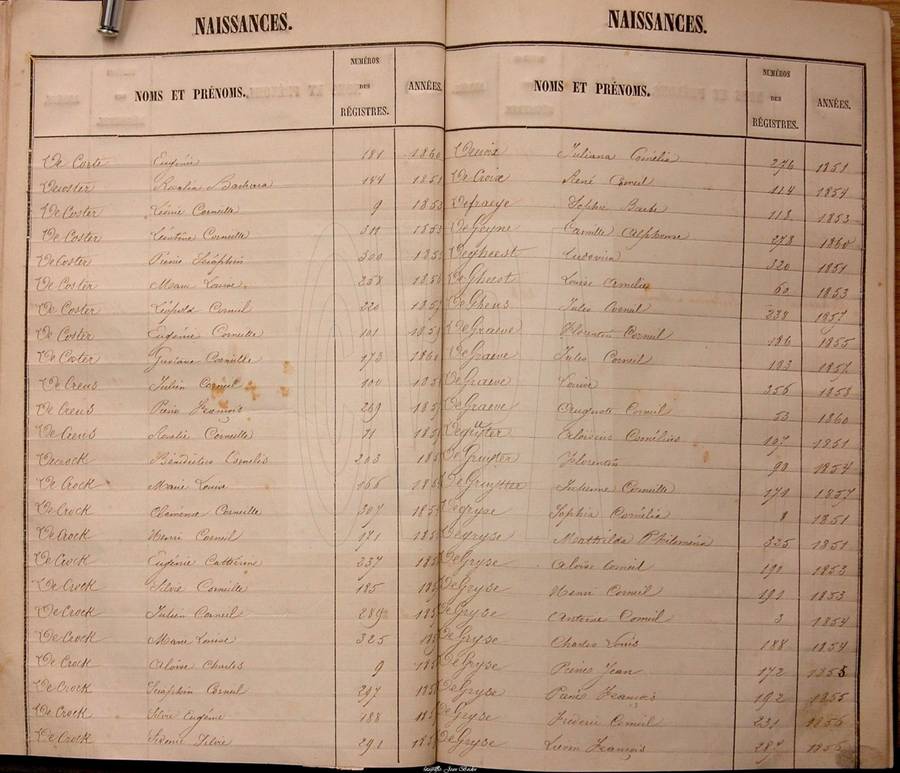 NAISSANCES.
NOMS ET PRÉNOMS. NUMÉROS DES RÉGISTRES. ANNÉES.
De Corte Eugénie 181 1860
Decoster Rosalia Barbara 144 1851
De Coster Léonie Corneille 9 1853
De Coster Léontine Corneille 311 1853
De Coster Pierre Séraphin 300
De Coster Marie Louise 258
De Coster Léopold Corneil 220 1857
De Coster Eugénie Corneille 101
De Coster Gustave Corneille 173 1860
De Creus Julien Corneil 100
De Creus Pierre François 269
De Creus Rosalie Corneille 71
Decrock Bénédictus Cornelis 203
De Crock Marie Louise 166
De Crock Clemence Corneille 307
De Crock Henri Corneil 171
De Crock Eugénie Catherine 237
De Crock Silvie Corneille 185
De Crock Julien Corneil 289
De Crock Marie Louise 325
De Crock Aloïse Charles 9
De Crock Séraphin Corneil 297
De Crock Silvie Eugénie 188
De Crock Silvie 291
NAISSANCES.
NOMS ET PRÉNOMS. NUMÉROS DES RÉGISTRES. ANNÉES.
Decroix Juliana Cornélia 276 1851
De Croix René Corneil 114 1854
Defraeye Sophie Barbe 118 1853
Camille Alphonse 278 1860
Degheest Ludovica 320 1851
De Gheest Louise Amélie 60 1853
De Gheus Jules Corneil 238 1857
De Graeve Florentin Corneil 186 1855
De Graeve Jules Corneil 193 1857
De Graeve Louise 356 1858
De Graeve Auguste Corneil 53 1860
Degruyter Aloïsius Cornélius 197 1851
De Gruyter Florentin 90 1854
De Gruytter Julienne Corneille 179 1857
Degryse Sophia Cornélia 8 1851
Degryse Mathilda Philomena 325 1851
De Gryse Aloïse Corneil 190 1853
De Gryse Henri Corneil 191 1853
De Gryse Antoine Corneil 3 1854
De Gryse Charles Louis 188 1854
De Gryse Pierre Jean 172 1855
De Gryse Pierre François 192 1855
De Gryse Fréderic Corneil 231 1856
De Gryse Lucien François 287 1856